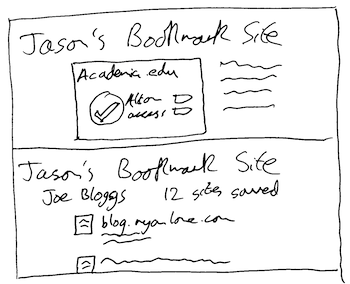 Jason's Bookmark Site
Academia.edu
Allow
access
Jason's Bookmark Site
Joe Bloggs 12 sites saved
blog.ryanlove.com